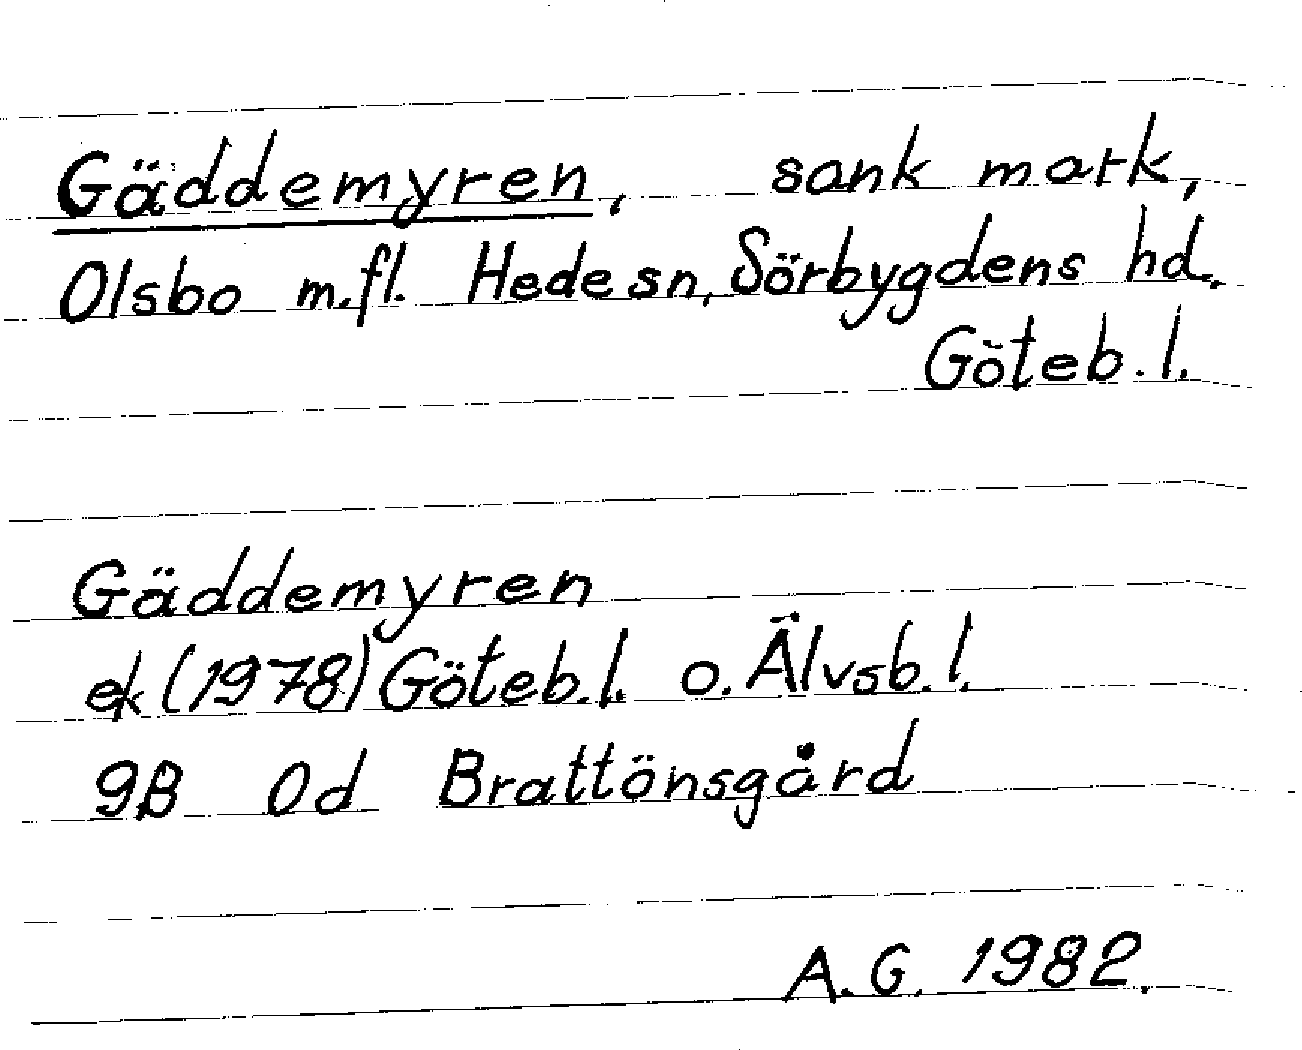 Gäddemyren, sank mark,
Olsbo m.fl. Hede sn, Sörbygdens hd.
Göteb. l.
Gäddemyren
ek (1978) Göteb. l. o. Älvsb. l.
9B 0d Brattönsgård
A.G. 1982.